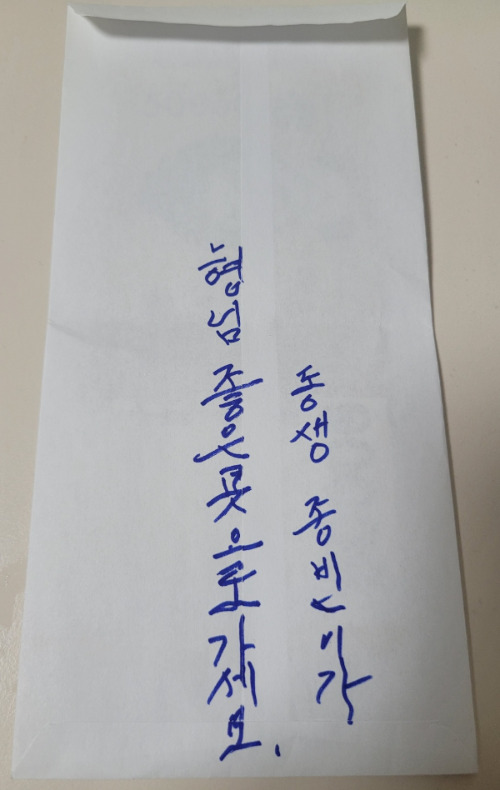 형님 좋은곳으로 가세요.
동생 종빈이가